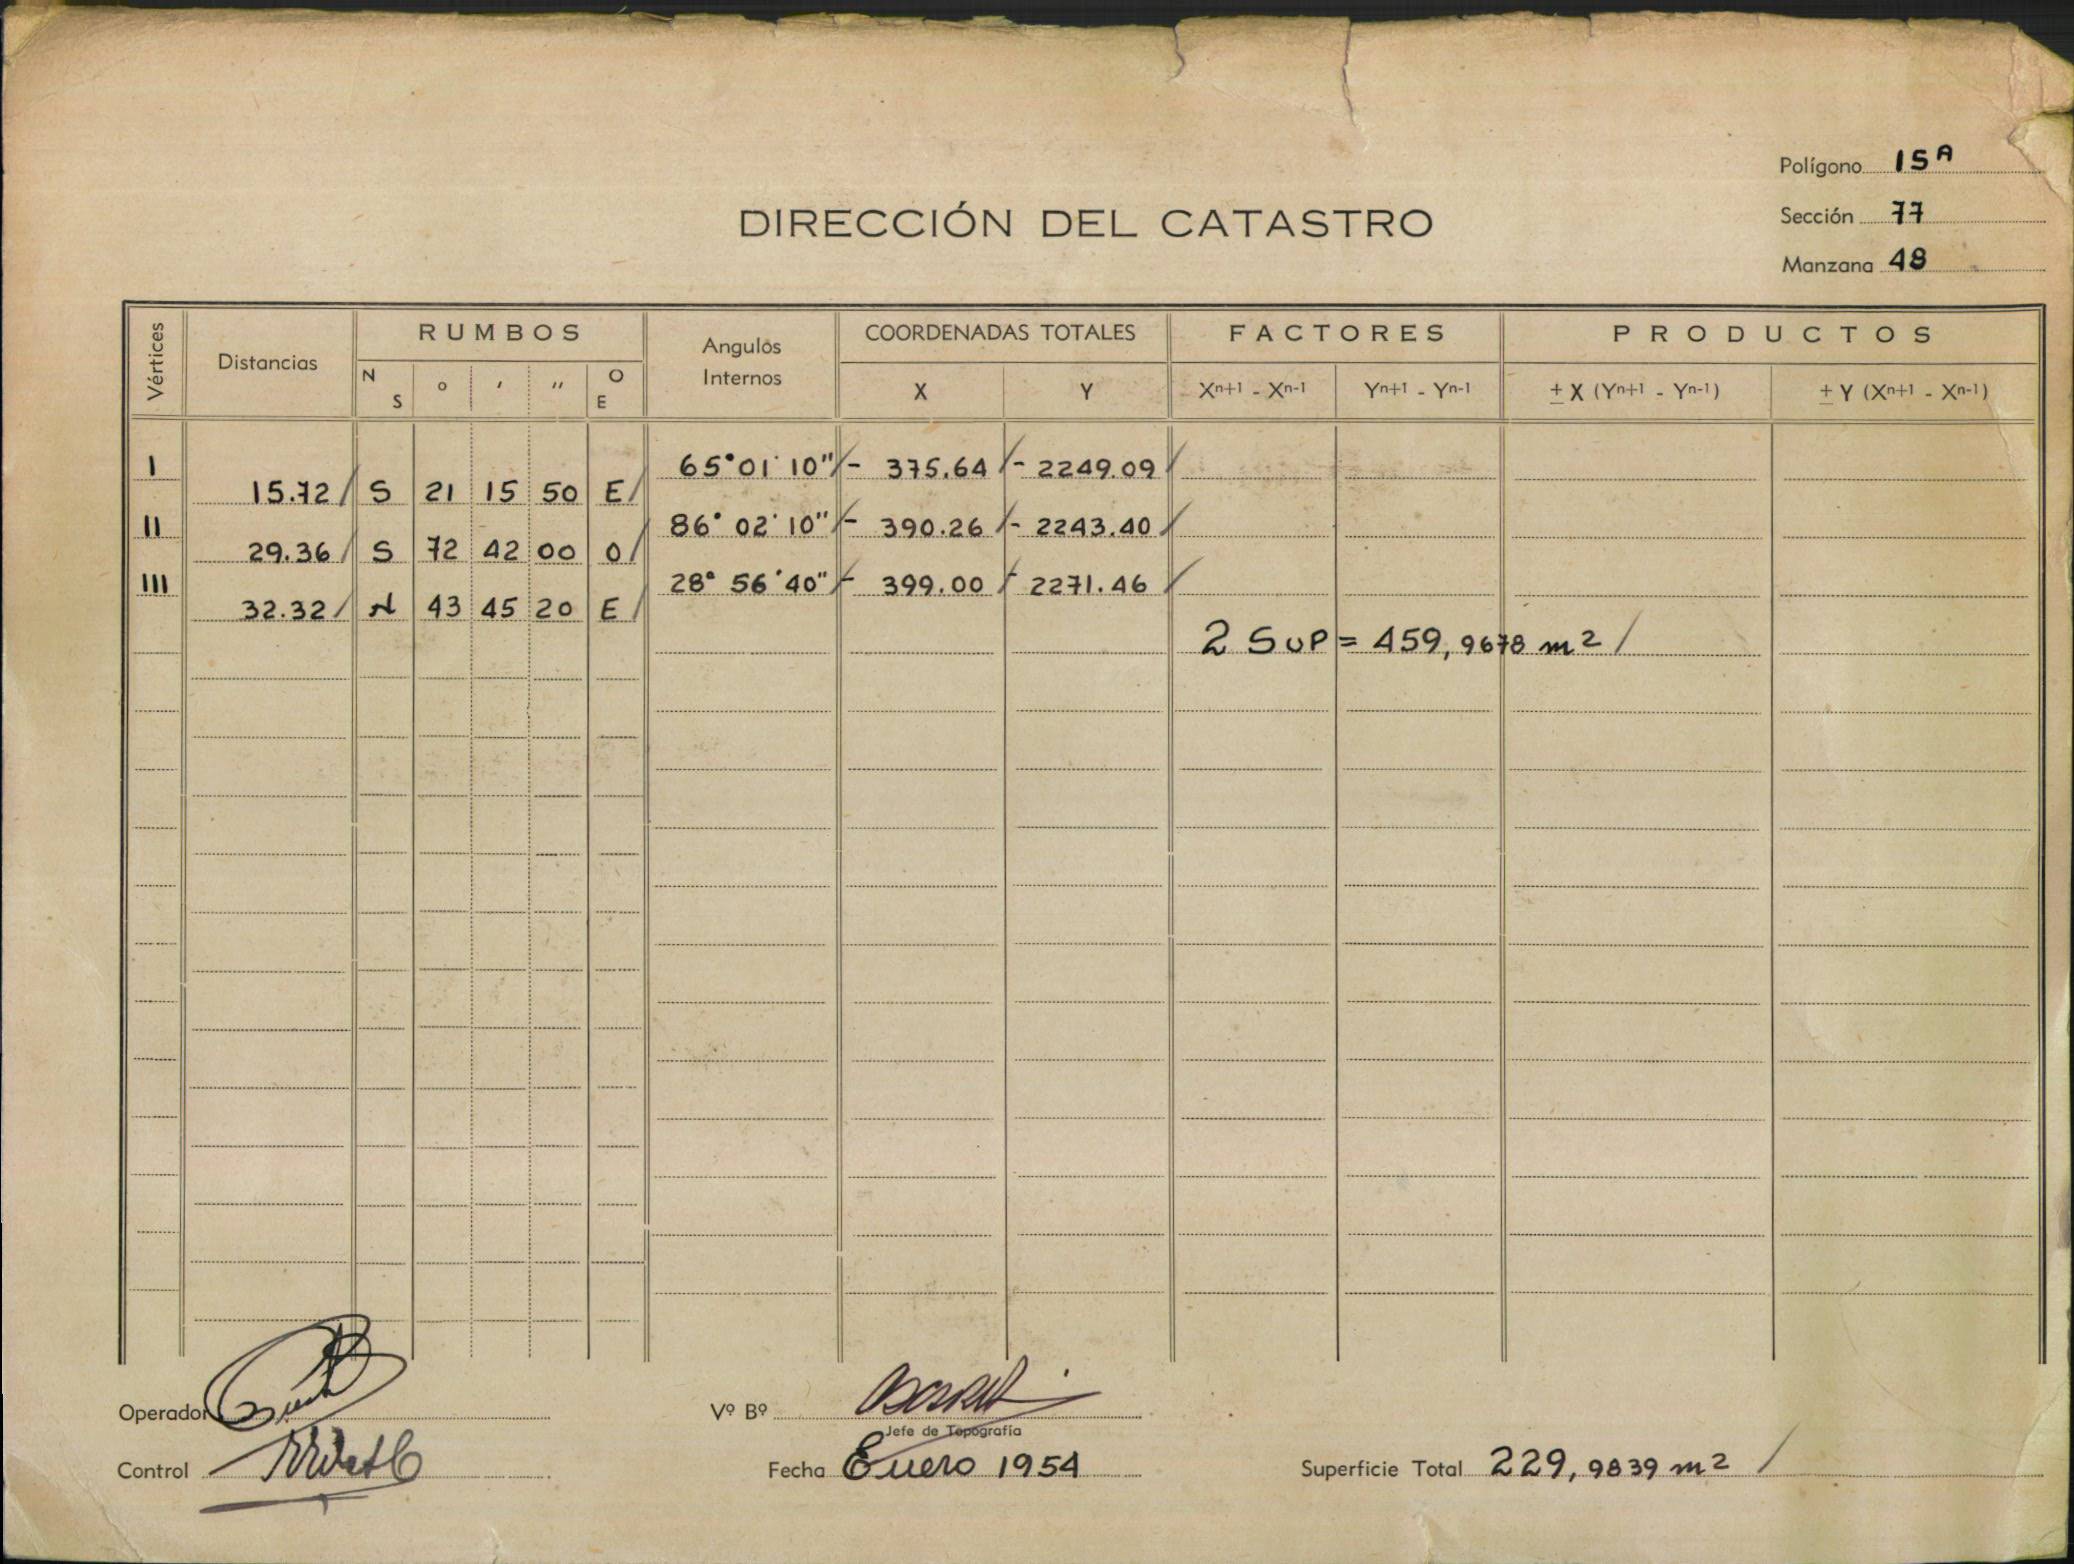 Polígono 15A
DIRECCIÓN DEL CATASTRO
Sección 77
Manzana 48
Vértices Distancias RUMBOS Angulos Internos COORDENADAS TOTALES FACTORES PRODUCTOS
N S ° ' " O E X Y Xn+1 - Xn-1 Yn+1 - Yn-1 ± X (Yn+1 - Yn-1) ± Y (Xn+1 - Xn-1)
I 65°01'10" / - 375.64 / - 2249.09 /
15.72 / S 21 15 50 E /
II 86°02'10" / - 390.26 / - 2243.40 /
29.36 / S 72 42 00 O /
III 28°56'40" / - 399.00 / - 2271.46 /
32.32 / N 43 45 20 E /
2 SUP = 459,9678 m2 /
Operador Vº Bº
Jefe de Topografía
Control Fecha Enero 1954 Superficie Total 229,9839 m2 /